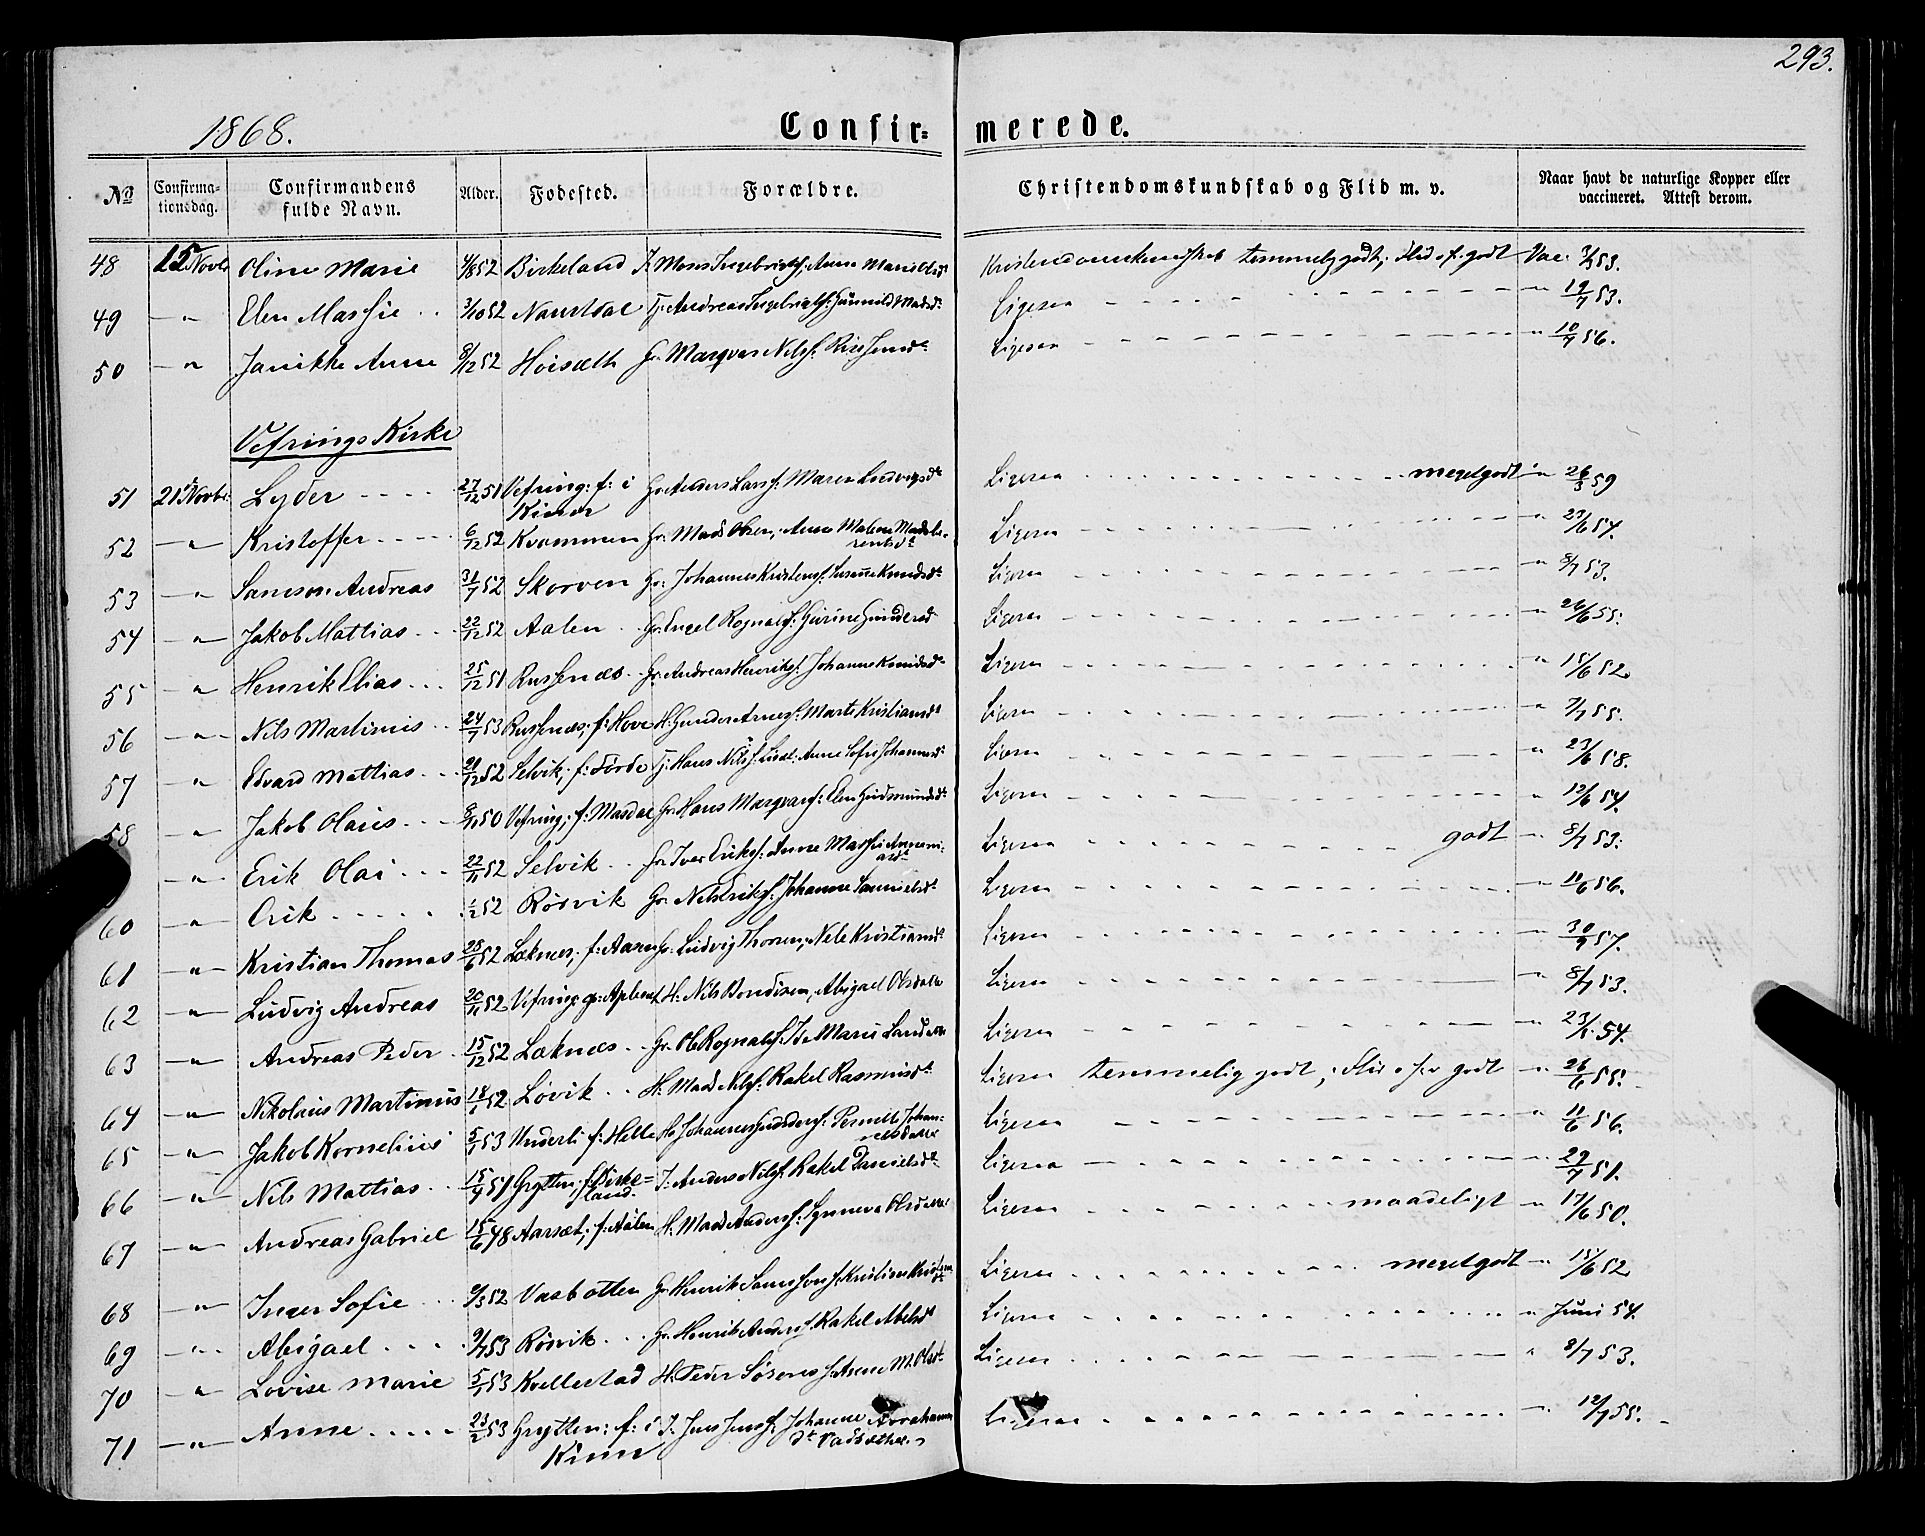 293.
1868.
Confir= merede.
No
Confirma-
tionsdag.
Confirmandens
fulde Navn.
Alder.
Fødested.
Forældre.
Christendomskundskab og Flid m. v.
Naar havt de naturlige Kopper eller
vaccineret. Attest derom.
48 15 Novbr Oline Marie 4/8 52 Birkeland J. Mons Ingebrigts. Anne Mons Olsdr Kristendomskundskab temmelig godt, Flid o. f. godt Vac. 53.
49 -"- Elen Marthe 3/10 52 Naustdal Tj. Andreas Ingebrigts. Gunnild Madsd. Ligesaa -"- 19/7 53.
50 -"- Janikke Anne 8/12 52 Hoisæth Gr. Marqvar Nilss. Ligesaa -"- 10/7 56.
Vefrings Kirke
51 21 Novbr. Lyder 27/12 51 Vefring: f: i Gr. Anders Larss. Maren Ludvigsdr Ligesaa megetgodt " 26/3 59
Kinn
52 -"- Kristoffer 6/12 52 Kvammen Gr. Mads Olsen, Anne Malene Ligesaa " 29/6 54.
53 -"- Samson Andreas 31/7 52 Skorven Gr. Johannes Kristens. Susanne Knudsdr Ligesaa " 8/7 53.
54 -"- Jakob Mattias 22/12 52 Aalen Gr. Engel Rognalds. Gurine Ligesaa " 26/6 55.
55 -"- Henrik Elias 25/12 51 Russenæs Gr. Andreas Henriks. Johanne Ligesaa " 15/6 52
56 -"- Nils Martinus 24/7 53 Russenæs; f: Hove H. Gunder Arnes. Marte Kristiansdr Ligesaa " 7/7 55.
57 -"- Edvard Mattias 21/12 52 Selvik; f: Førde Tj. Hans Nilss. Anne Sofie Johannesdr Ligesaa " 23/6 58.
58 -"- Jakob Olaus 9/11 50 Vefring; f: Masdal Gr. Hans Marqvars. Elen Gudmundsdr Ligesaa " 12/6 54.
-"- Erik Olai 22/11 52 Selvik Gr. Iver Eriks. Anne Marthe Ligesaa godt " 8/7 53.
60 -"- Erik 1/2 52 Rørvik Gr. Nils Eriks. Johanne Samuelsdr Ligesaa " 11/6 56.
61 -"- Kristian Thomas 28/6 52 Løknæs; f: Gr. Ludvig Thorsen, Nele Kristiansdr Ligesaa " 30/9 57.
62 -"- Ludvig Andreas 20/11 52 Vefring H. Nils Bendixen, Abigael Olsdatter Ligesaa " 8/7 53.
63 -"- Andreas Peder 15/12 52 Løknæs Gr. Ole Rognalds. Ligesaa " 23/6 54.
64 -"- Nikolaus Martinus 18/6 52 Løvik H. Mads Nilss. Rakel Rasmusdr Ligesaa temmelig godt, Flid o. f. v. godt " 26/6 55.
65 -"- Jakob Kornelius 5/7 53 Underli f: Helle H. Johannes Pernele Johan- Ligesaa " 11/6 56.
nesdatter
66 -"- Nils Mattias 15/7 51 Grytten; f. Birke= J. Anders Nilss. Rakel Danielsdr Ligesaa " 29/7 51.
land.
67 -"- Andreas Gabriel 15/6 48 Aarsæt; f: Aalen H. Mads Anders. Synneva Olsdatter Ligesaa maadeligt " 17/6 50.
68 -"- Inger Sofie 9/3 52 Vasbotten Gr. Henrik Samsons. Kristine Ligesaa megetgodt " 15/6 52
69 -"- Abigael 9/7 53 Rørvik Gr. Henrik Anders. Rakel Abelsdr Ligesaa " Juni 54.
70 -"- Lovise Marie 5/1 53 Kvellestad H. Peder Sørens. Anne M. Olsdr Ligesaa " 8/7 53.
71 -"- Anne 23/2 53 Grytten: f: i J. Jens Jenss. Johanne Avraham Ligesaa " 12/7 55.
Kinn